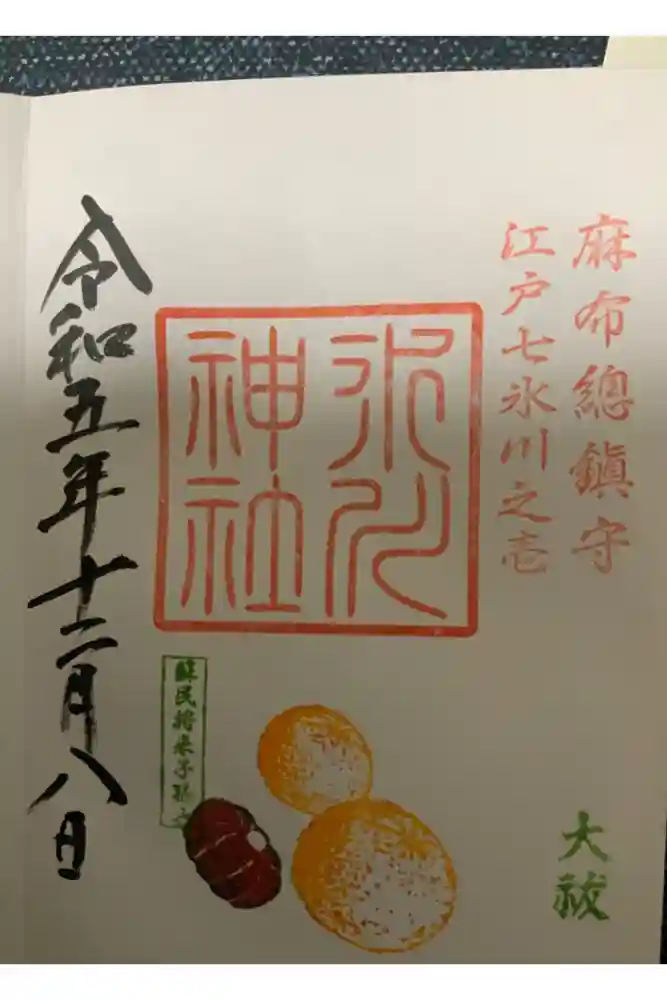 麻布總鎮守
江戸七氷川之壱
氷川
神社
大祓
蘇民将来子孫
令和五年十二月八日